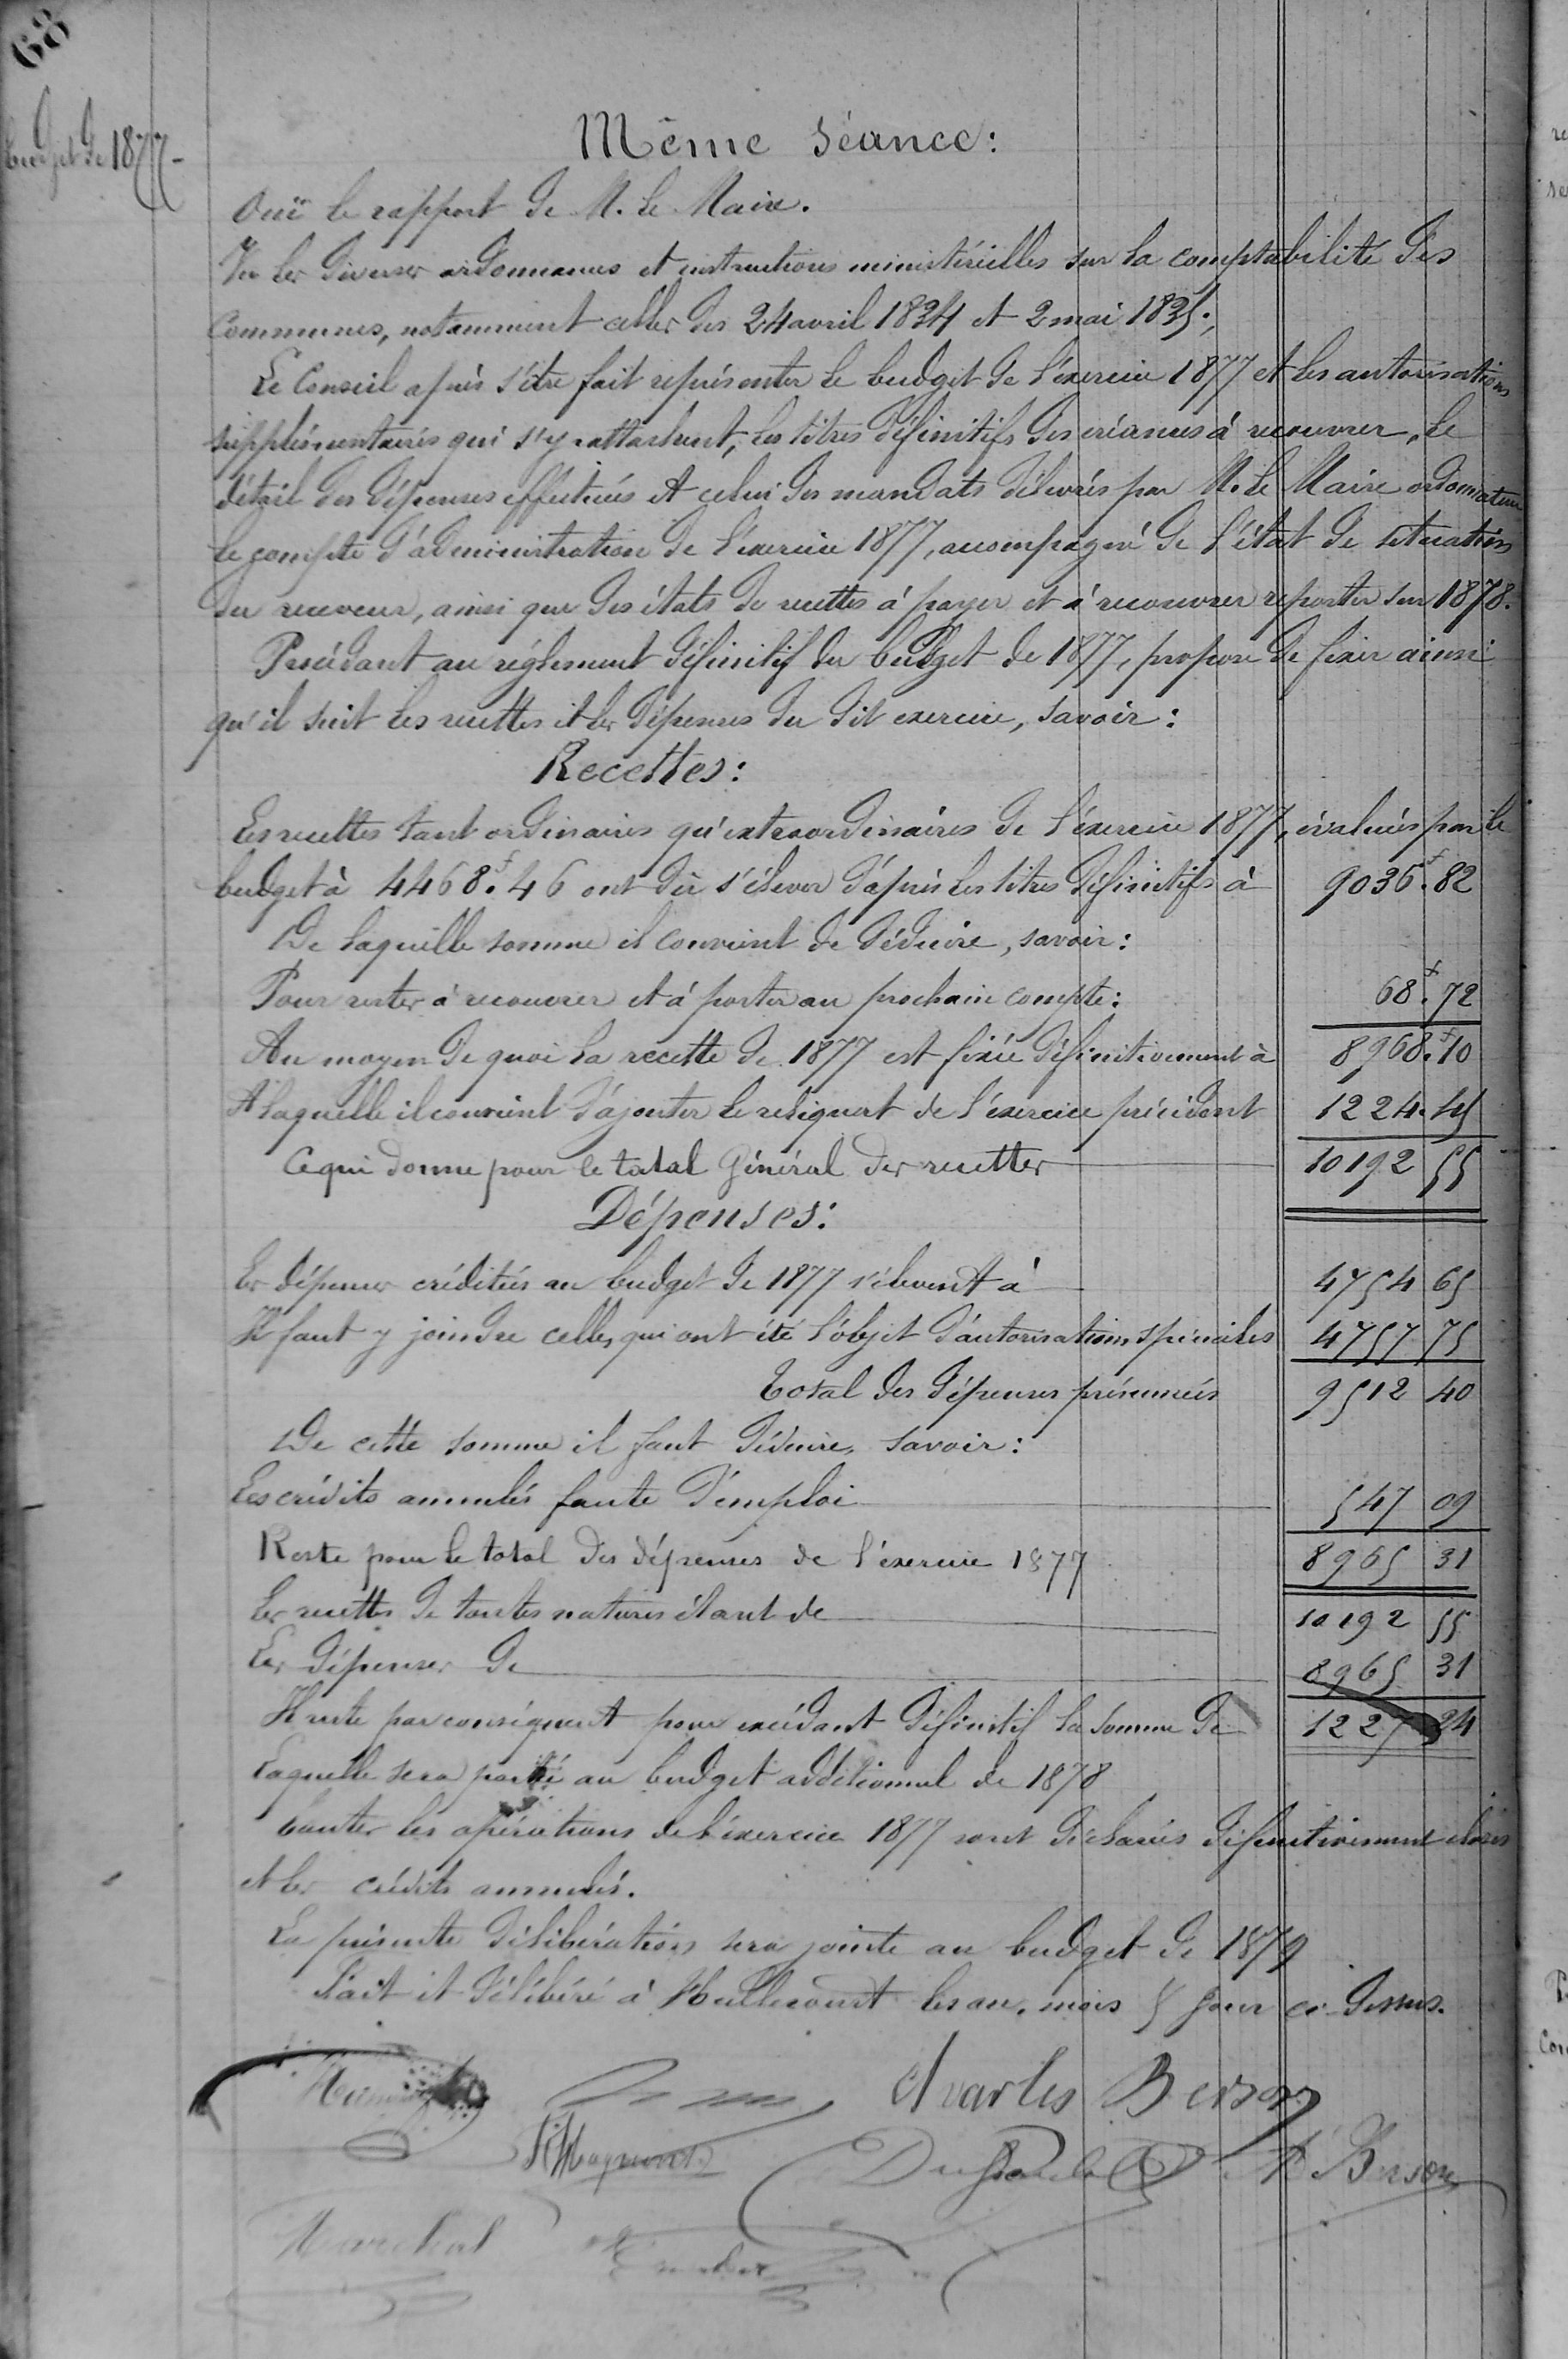 68
budget de 1877 -
Même séance :
Ouï le rapport de M. le Maire.
Vu les diverses ordonnances et instructions ministérielles sur la comptabilité des
Communes, notamment celles des 24 avril 1834 et 2 mai 1835 ;
Le Conseil après s'être fait représenter le budget de l'exercice 1877 et les autorisations
supplémentaires qui s'y rattachent, les titres définitifs des créances à recouvrer, le
détail des dépenses effectuées et celui des mandats délivrés par M. le Maire ordonnateur
le compte d'administration de l'exercice 1877, accompagné de l'état de situation
du receveur, ainsi que des états de recettes à payer et à recouvrer reporter sur 1878.
Procédant au réglement définitif du budget de 1877, propose de fixer ainsi
qu'il suit les recettes et les dépenses du dit exercice, savoir :
Recettes :
Les recettes tant ordinaires qu'extraordinaires de l'exercice 1877, évaluées par le
budget à 4468f.46 ont dû s'élever d'après les titres définitifs à 9036f.82
De laquelle somme il convient de déduire, savoir :
Pour rester à recouvrer et à porter au prochain compte : 68f.72
Au moyen de quoi la recette de 1877 est fixée définitivement à 8968f.10
A laquelle il convient d'ajouter le reliquat de l'exercice précédent 1224.45
Ce qui donne pour le total Général des recettes 10192 55
Dépenses :
Les dépenses créditées au budget de 1877 s'élèvent à 4754 65
Il faut y joindre celles qui ont été l'objet d'autorisations spéciales 4757 75
Total des dépenses présumées 9512 40
De cette somme il faut déduire, savoir :
Les crédits annulés faute d'emploi 547 09
Reste pour le total des dépenses de l'exercice 1877 8965 31
Les recettes de toutes natures étant de 10192 55
Les dépenses de 8965 31
Il reste par conséquent pour excédant définitif la somme de 1227 24
Laquelle sera portée au budget additionnel de 1878
Toutes les opérations de l'exercice 1877 sont déclarées définitivement closes
et les crédits annulés.
La présente délibération sera jointe au budget de 1879
Fait et délibéré à Hullecourt les an, mois & jour ci-dessus.
Charles Berson
Berson
Marchal